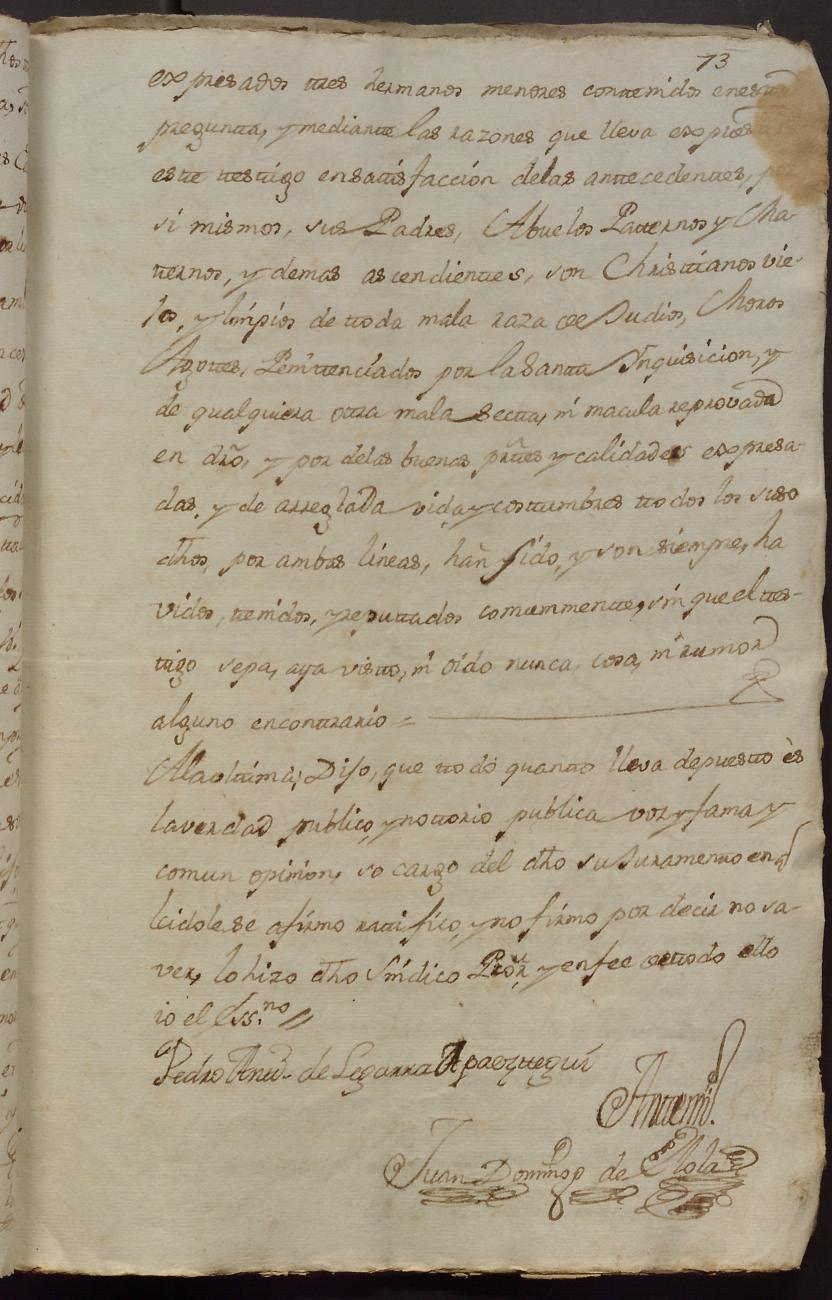 73
expresados ttres hermanos menores conttenidos en estta
pregunta, y mediantte las razones que lleva expres
este ttesttigo en sattisfacción delas anttecedenttes, por
si mismos, sus Padres, Abuelos Patternos y Ma-
tternos, y demas ascendienttes, son Christtianos vie-
jos, y limpios de ttoda mala raza de Judios, Moros
Agottes, Penittenciados por la Santta Ynquisicion, y
de qualquiera ottra mala sectta, ni macula reprovada
en dro, y por delas buenas prttes y calidades expresa-
das, y de arreglada vida y costtumbres ttodos los suso
dhos, por ambas líneas, han sido, y son siempre, ha
vidos, ttenidos, y reputtados comunmentte, sin que el ttes-
ttigo sepa, aya vistto, ni oído nunca, cosa, ni rumor
alguno encontrario =
Ala ulttima; Dijo, que ttodo quantto lleva depuestto ès
la verdad publico, y nottorio publica voz y fama y
comun opinion, so cargo del dho su Juramentto en ql
leidole se afirmo rattifico, y no firmo por decir no sa-
ver, lo hizo dho Sindico Pror y enfee de ttodo ello
io el Ess.no //
Pedro Antt.o de Legarra Apaozttegui
Antte mi
Juan Domingo de Olola